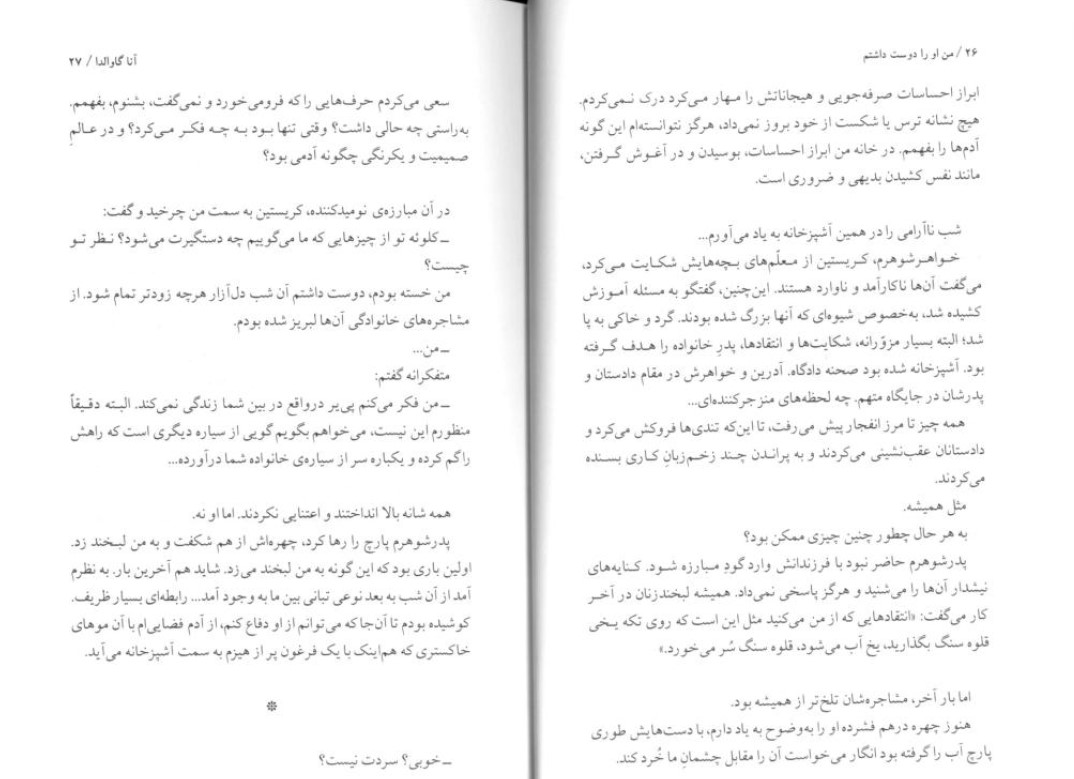 ۲۶ / من او را دوست داشتم
ابراز احساسات صرفه‌جویی و هیجاناتش را مهار می‌کرد درک نمی‌کردم.
هیچ نشانه ترس یا شکست از خود بروز نمی‌داد، هرگز نتوانسته‌ام این گونه
آدم‌ها را بفهمم. در خانه من ابراز احساسات، بوسیدن و در آغوش گرفتن،
مانند نفس کشیدن بدیهی و ضروری است.
شب ناآرامی را در همین آشپزخانه به یاد می‌آورم...
خواهرشوهرم، کریستین از معلّم‌های بچه‌هایش شکایت می‌کرد،
می‌گفت آن‌ها ناکارآمد و ناوارد هستند. این‌چنین، گفتگو به مسئله آموزش
کشیده شد، به‌خصوص شیوه‌ای که آنها بزرگ شده بودند. گرد و خاکی به پا
شد؛ البته بسیار مزوّرانه، شکایت‌ها و انتقادها، پدرِ خانواده را هدف گرفته
بود. آشپزخانه شده بود صحنه دادگاه. آدرین و خواهرش در مقام دادستان و
پدرشان در جایگاه متهم. چه لحظه‌های منزجرکننده‌ای...
همه چیز تا مرز انفجار پیش می‌رفت، تا این‌که تندی‌ها فروکش می‌کرد و
دادستانان عقب‌نشینی می‌کردند و به پراندن چند زخم‌زبانِ کاری بسنده
می‌کردند.
مثل همیشه.
به هر حال چطور چنین چیزی ممکن بود؟
پدرشوهرم حاضر نبود با فرزندانش وارد گودِ مبارزه شود. کنایه‌های
نیشدار آن‌ها را می‌شنید و هرگز پاسخی نمی‌داد. همیشه لبخندزنان در آخر
کار می‌گفت: «انتقادهایی که از من می‌کنید مثل این است که روی تکه یخی
قلوه سنگ بگذارید، یخ آب می‌شود، قلوه سنگ سُر می‌خورد.»
اما بار آخر، مشاجره‌شان تلخ‌تر از همیشه بود.
هنوز چهره درهم فشرده او را به‌وضوح به یاد دارم، با دست‌هایش طوری
پارچ آب را گرفته بود انگار می‌خواست آن را مقابل چشمانِ ما خُرد کند.
آنا گاوالدا / ۲۷
سعی می‌کردم حرف‌هایی را که فرومی‌خورد و نمی‌گفت، بشنوم، بفهمم.
به‌راستی چه حالی داشت؟ وقتی تنها بود به چه فکر می‌کرد؟ و در عالمِ
صمیمیت و یکرنگی چگونه آدمی بود؟
در آن مبارزه‌ی نومیدکننده، کریستین به سمت من چرخید و گفت:
ـ کلوئه تو از چیزهایی که ما می‌گوییم چه دستگیرت می‌شود؟ نظر تو
چیست؟
من خسته بودم، دوست داشتم آن شب دل‌آزار هرچه زودتر تمام شود. از
مشاجره‌های خانوادگی آن‌ها لبریز شده بودم.
ـ من...
متفکرانه گفتم:
ـ من فکر می‌کنم پی‌یر درواقع در بین شما زندگی نمی‌کند. البته دقیقاً
منظورم این نیست، می‌خواهم بگویم گویی از سیاره دیگری است که راهش
را گم کرده و یکباره سر از سیاره‌ی خانواده شما درآورده...
همه شانه بالا انداختند و اعتنایی نکردند. اما او نه.
پدرشوهرم پارچ را رها کرد، چهره‌اش از هم شکفت و به من لبخند زد.
اولین باری بود که این گونه به من لبخند می‌زد. شاید هم آخرین بار. به نظرم
آمد از آن شب به بعد نوعی تبانی بین ما به وجود آمد... رابطه‌ای بسیار ظریف.
کوشیده بودم تا آن‌جا که می‌توانم از او دفاع کنم، از آدم فضایی‌ام با آن موهای
خاکستری که هم‌اینک با یک فرغون پر از هیزم به سمت آشپزخانه می‌آید.
ـ خوبی؟ سردت نیست؟